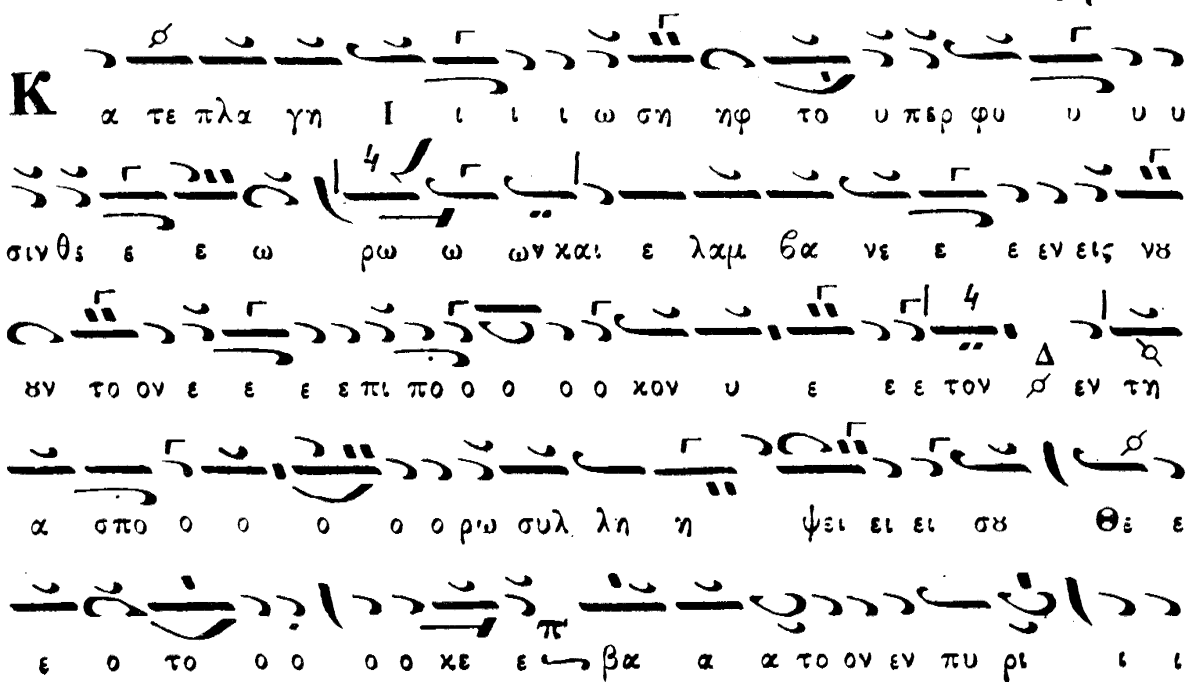 Κ α τε πλα γη Ι ι ι ι ω ση ηφ το υ περ φυ υ υ υ
σιν θε ε ε ω ρω ω ων και ε λαμ βα νε ε ε εν εις νȣ
ȣν το ον ε ε ε ε πι πο ο ο ο ο κον υ ε ε ε τον Δ εν τη
α σπο ο ο ο ο ο ρω συλ λη η ψει ει ει σȣ Θε ε
ε ο το ο ο ο ο κε ε π βα α α το ον εν πυ ρι ι ι